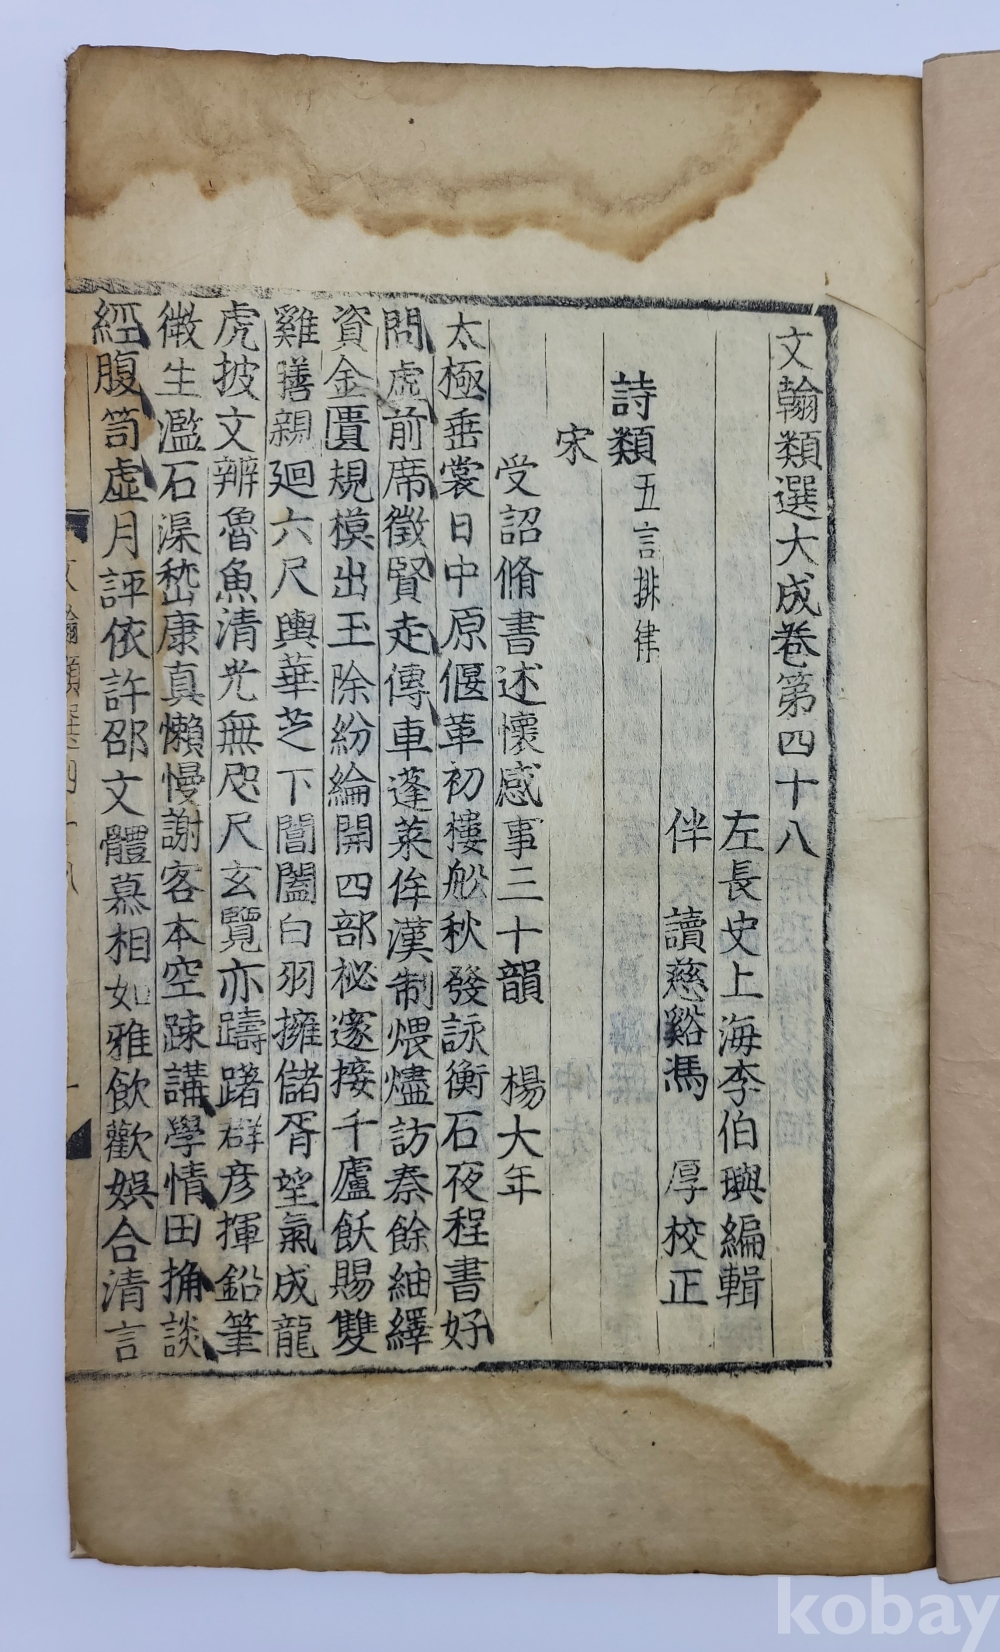 文翰類選大成卷第四十八
左長史上海李伯璵編輯
伴讀慈谿馮厚校正
詩類五言排律
宋
受詔脩書述懷感事三十韻 楊大年
太極垂裳日中原偃革初樓船秋發詠衡石夜程書好
問虛前席徵賢走傳車蓬萊侔漢制煨燼訪秦餘紬繹
資金匱規模出玉除紛綸開四部秘邃接千廬飫賜雙
雞膳親廻六尺輿華芝下閶闔白羽擁儲胥望氣成龍
虎披文辨魯魚清光無咫尺玄覽亦躊躇群彥揮鉛筆
微生濫石渠嵇康真懶慢謝客本空踈講學情田埆談
經腹笥虛月評依許邵文體慕相如雅飲歡娛合清言
文翰類選四十八
一
kobay